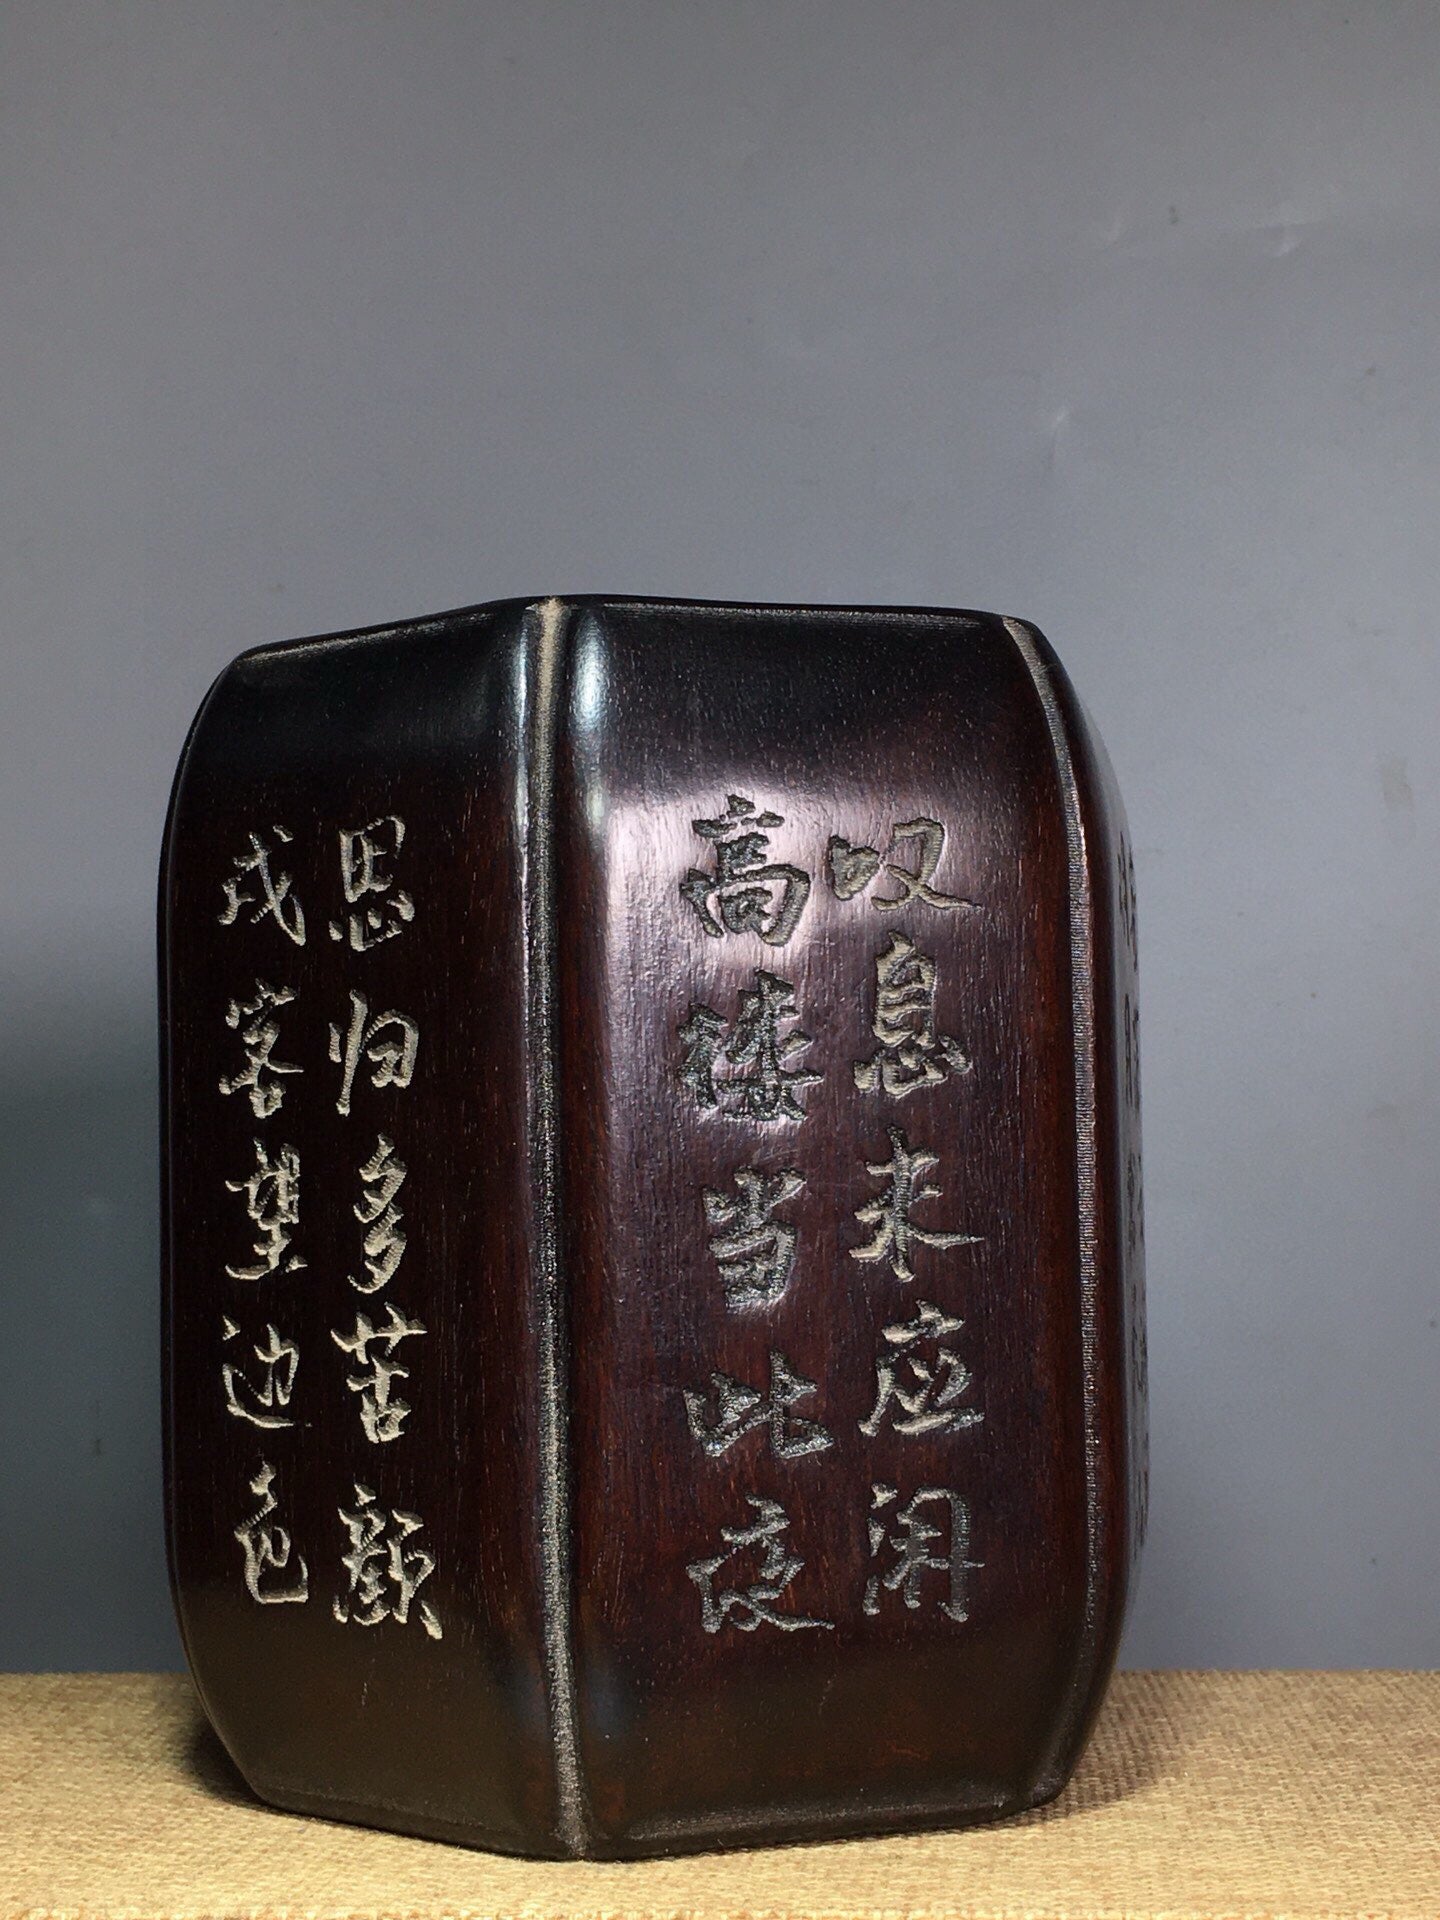 戍客望边色
思归多苦颜
高楼当此夜
叹息未应闲